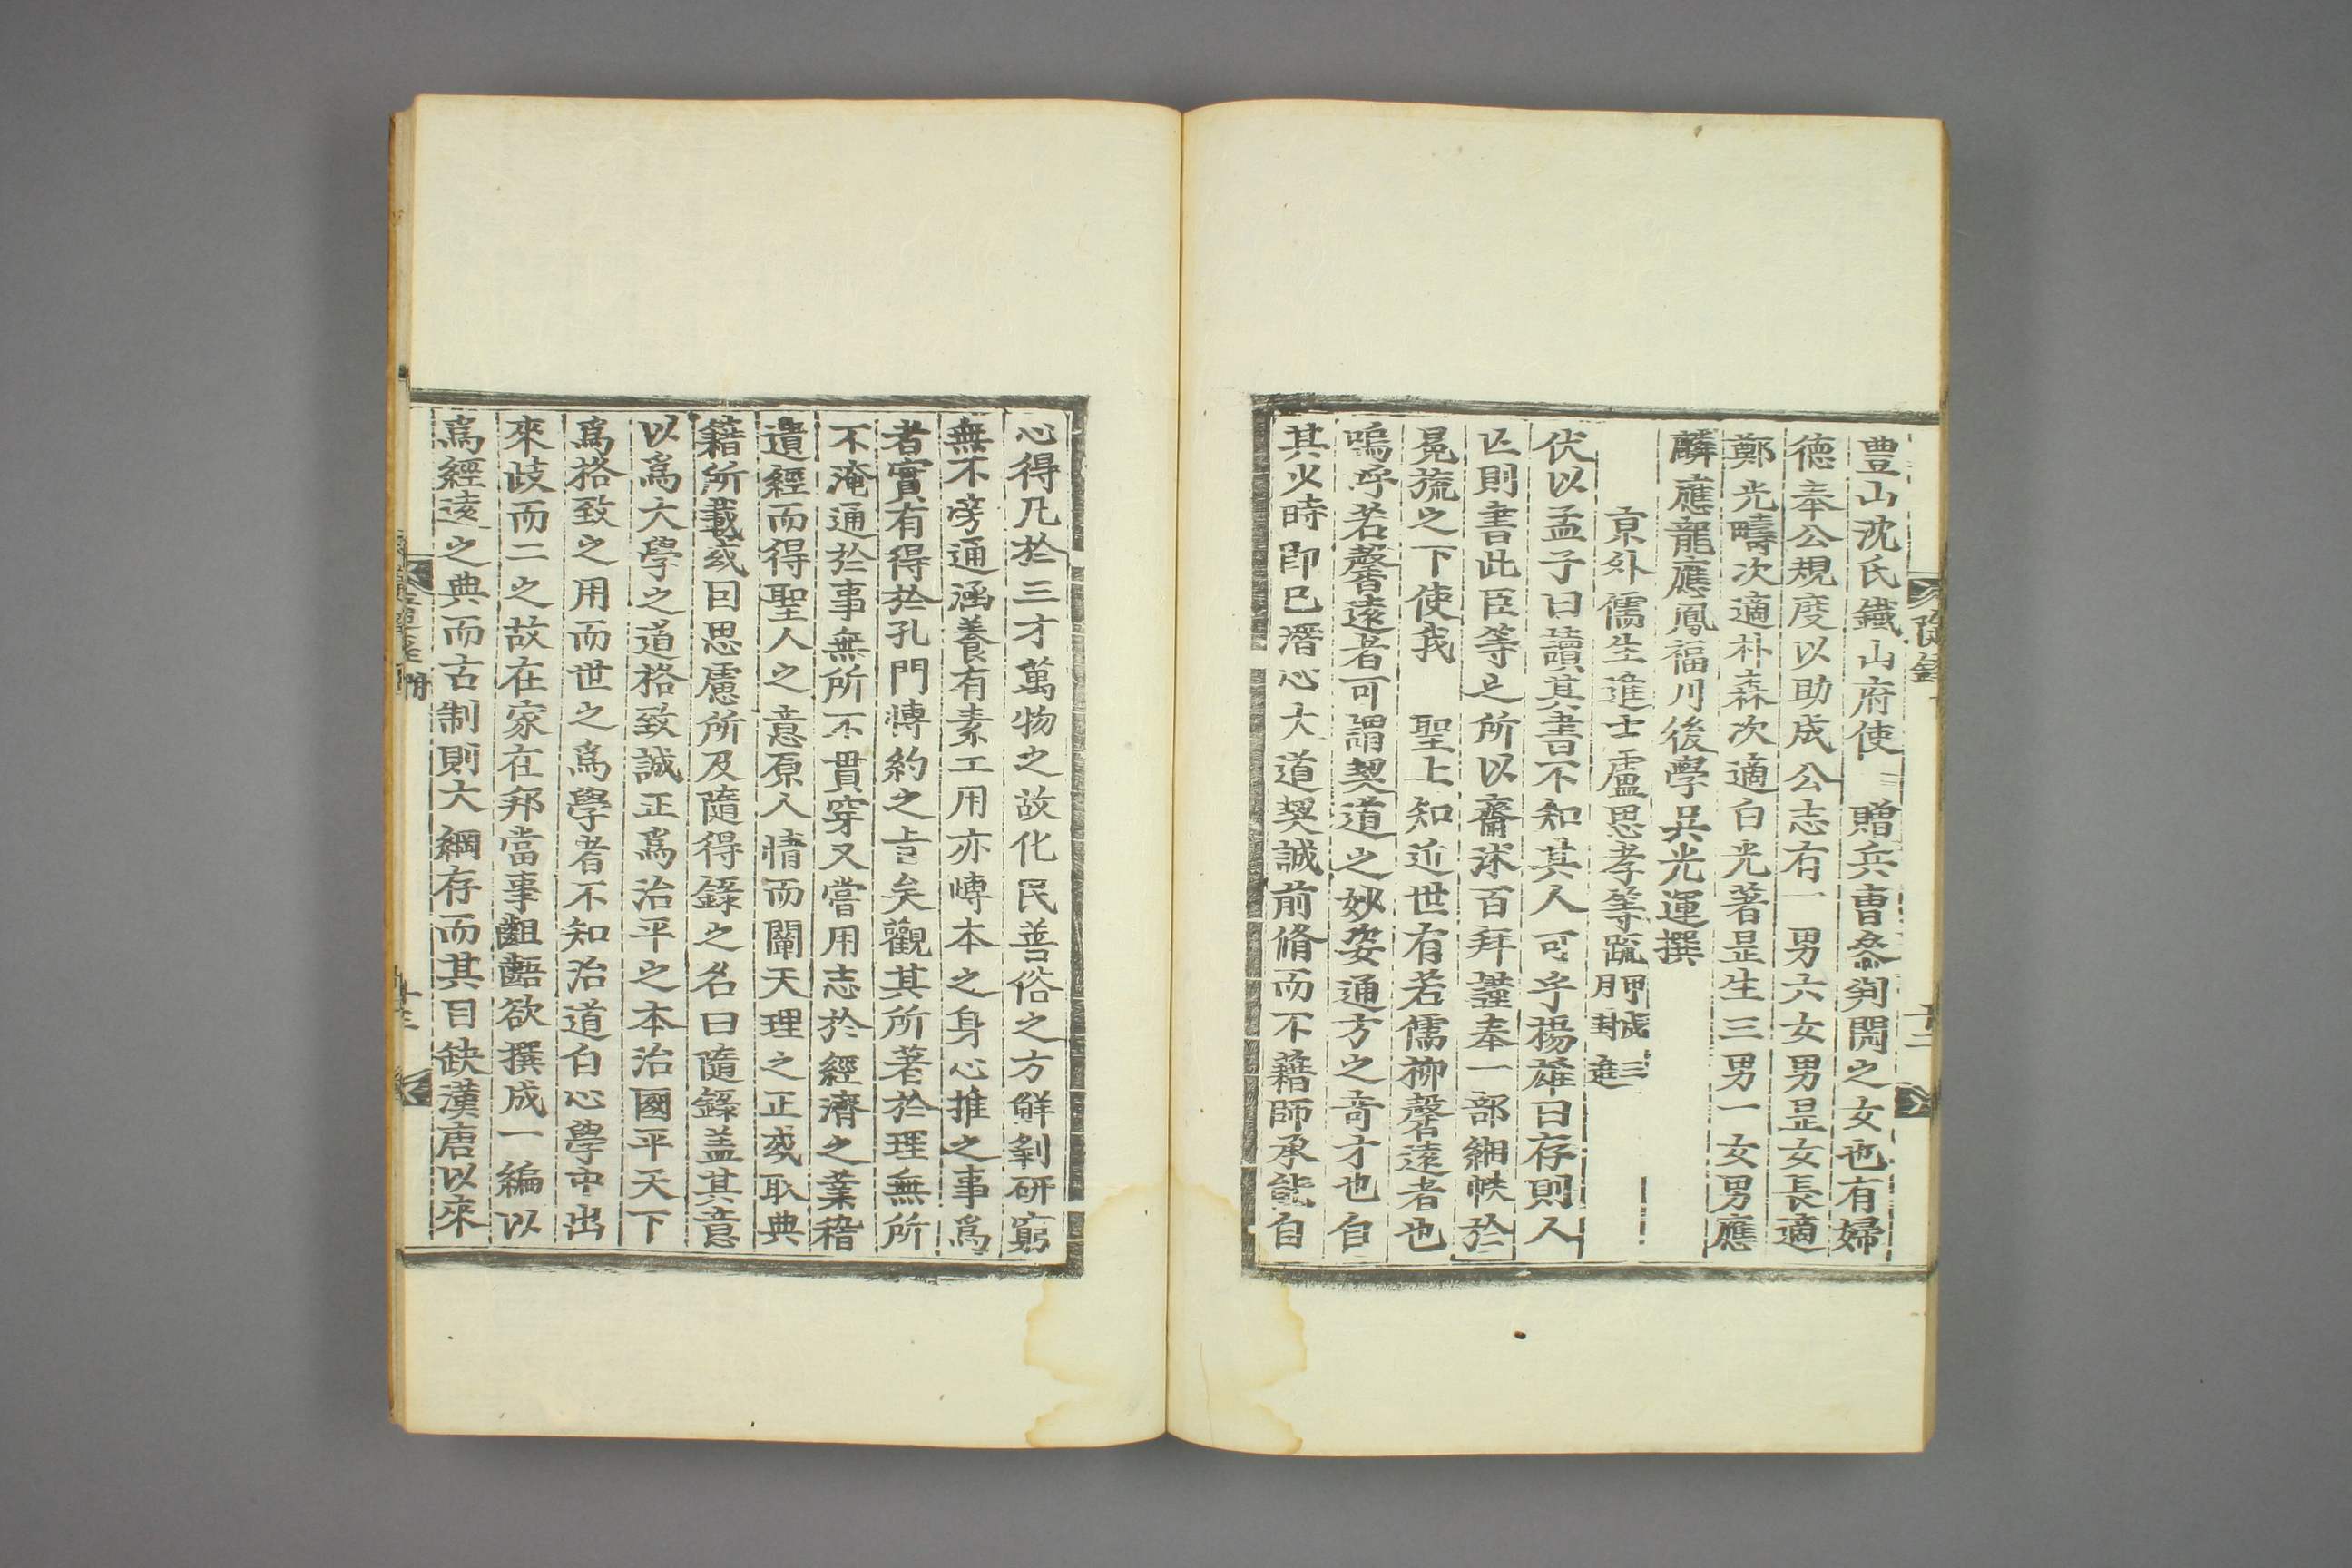 豊山沈氏鐵山府使 贈兵曹叅判閌之女也有婦
德奉公規度以助成公志有一男六女男昰女長適
鄭光疇次適朴森次適白光著昰生三男一女男應
麟應龍應鳳福川後學吳光運撰
京外儒生進士盧思孝等疏
伏以孟子曰讀其書不知其人可乎楊雄曰存則人
亾則書此臣等之所以齋沐百拜謹奉一部緗帙於
冕旒之下使我 聖上知近世有若儒柳馨遠者也
嗚呼若馨遠者可謂契道之妙姿通方之竒才也自
其火時卽已潛心大道契誠前脩而不藉師承能自
心得凡於三才萬物之故化民善俗之方鮮剝研窮
無不旁通涵養有素工用亦博本之身心推之事爲
者實有得於孔門博約之旨矣觀其所著於理無所
不淹通於事無所不貫穿又嘗用志於經濟之業稽
遺經而得聖人之意原人情而闡天理之正或取典
籍所載或因思慮所及隨得錄之名曰隨錄盖其意
以爲大學之道格致誠正爲治平之本治國平天下
爲格致之用而世之爲學者不知治道自心學中出
來歧而二之故在家在邦當事齟齬欲撰成一編以
爲經遠之典而古制則大綱存而其目缺漢唐以來